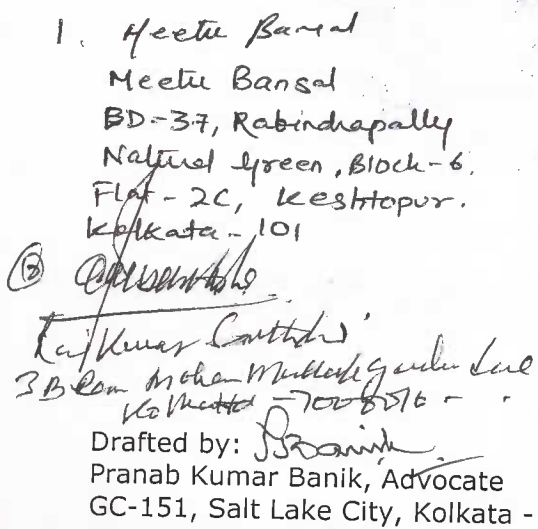 1. Meetu Bansal
Meetu Bansal
BD-37, Rabindrapally
Natural Green, Block-6,
Flat - 2C, Keshtopur.
Kolkata - 101
②
Raj Kumar
3B Ram Mohan Mullick Garden Lane
Kolkata -
Drafted by:
Pranab Kumar Banik, Advocate
GC-151, Salt Lake City, Kolkata -